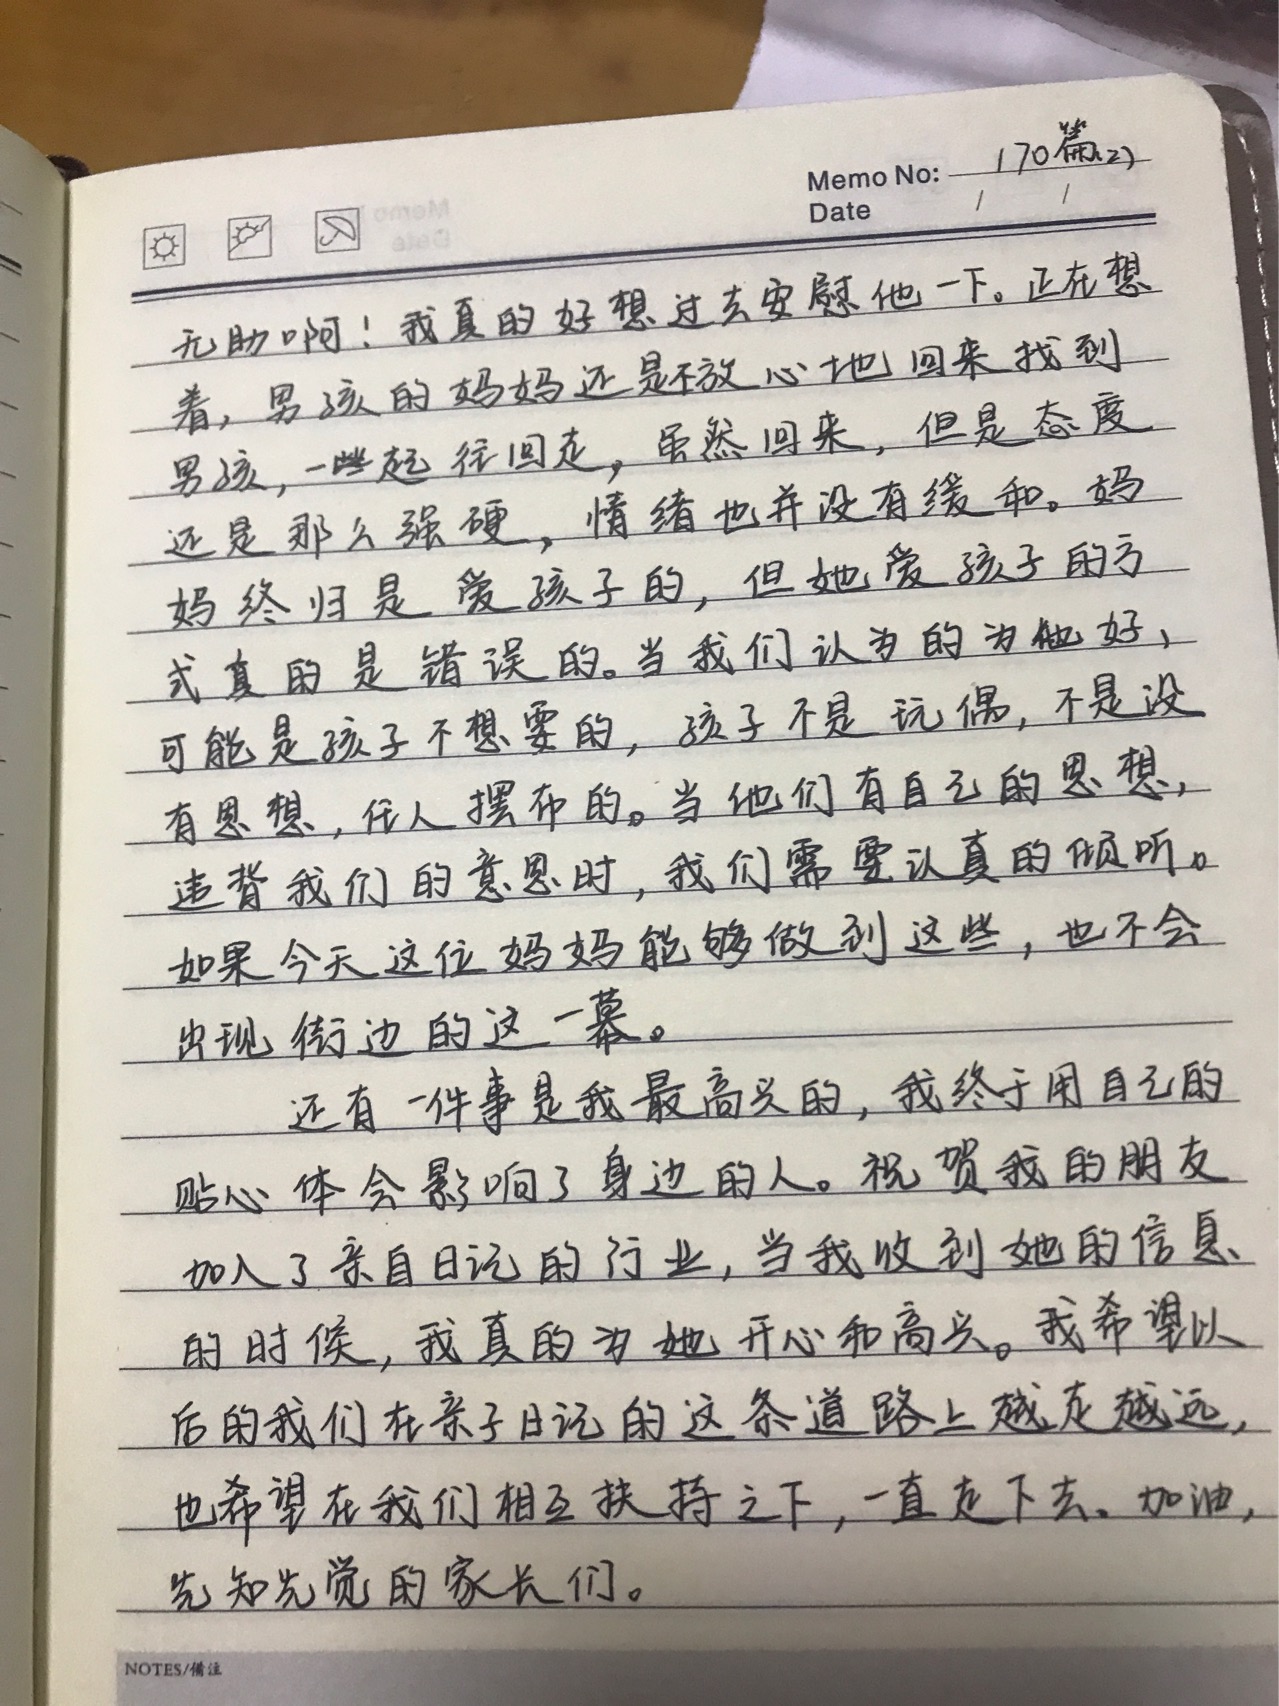 Memo No: 170篇(2)
Date / /
无助啊！我真的好想过去安慰他一下。正在想
着，男孩的妈妈还是不放心地回来找到
男孩，一些起往回走，虽然回来，但是态度
还是那么强硬，情绪也并没有缓和。妈
妈终归是爱孩子的，但她爱孩子的方
式真的是错误的。当我们认为的为他好，
可能是孩子不想要的，孩子不是玩偶，不是没
有思想，任人摆布的。当他们有自己的思想，
违背我们的意思时，我们需要认真的倾听。
如果今天这位妈妈能够做到这些，也不会
出现街边的这一幕。
还有一件事是我最高兴的，我终于用自己的
贴心体会影响了身边的人。祝贺我的朋友
加入了亲自日记的行业，当我收到她的信息
的时候，我真的为她开心和高兴。我希望以
后的我们在亲子日记的这条道路上越走越远，
也希望在我们相互扶持之下，一直走下去。加油，
先知先觉的家长们。
NOTES/備注